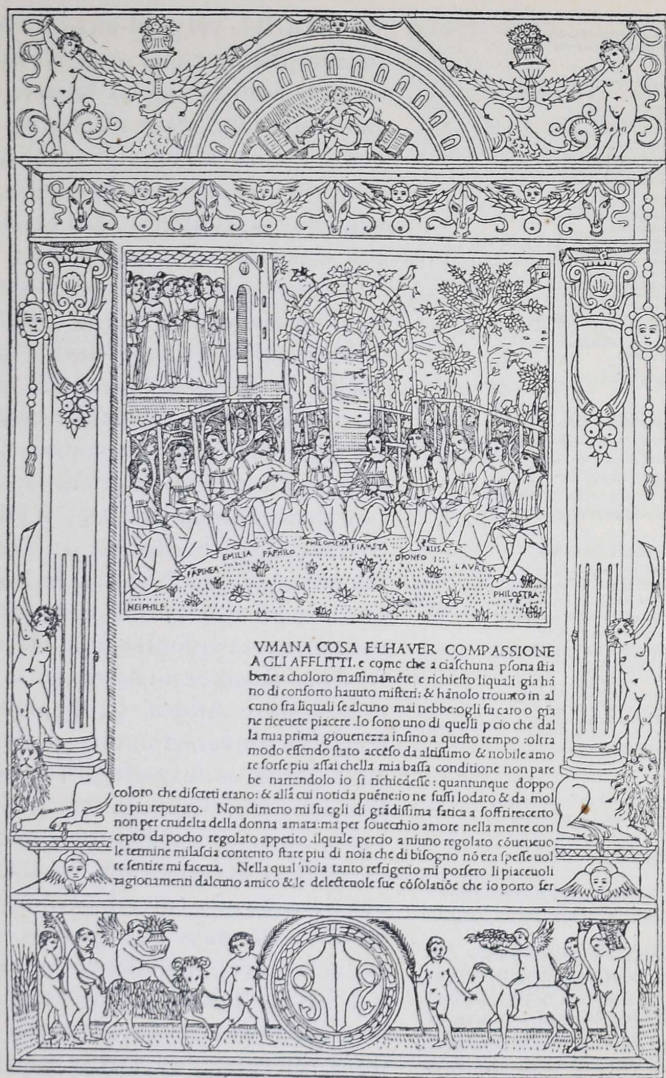 EMILIA PAPHILO PHILOMENA FIAMETA DIONEO ELISA
PAPINEA LAVRETA
NEIPHILE PHILOSTRA
VMANA COSA E LHAVER COMPASSIONE
A GLI AFFLITTI. e come che a ciaschuna psona stia
bene a choloro massimamẽte e richiesto liquali gia hã
no di conforto hauuto misteri: & hãnolo trouato in al
cuno fra liquali se alcuno mai nebbe: ogli fu caro o gia
ne riceuete piacere. Io sono uno di quelli p cio che dal
la mia prima giouenezza insino a questo tempo :oltra
modo essendo stato acceso da altissimo & nobile amo
re forse piu assai chella mia bassa conditione non pare
be narrandolo io si richiedesse : quantunque doppo
coloro che discreti erano: & alla cui noticia puẽne: io ne fussi lodato & da mol
to piu reputato. Non dimeno mi fu egli di grãdissima fatica a soffrire: certo
non per crudelta della donna amata: ma per souerchio amore nella mente con
cepto da pocho regolato appetito .ilquale percio a niuno regolato cõueneuo
le termine milascia contento stare piu di noia che di bisogno nõ era spesse uol
te sentire mi faceua. Nella qual noia tanto refrigerio mi porsero li piaceuoli
ragionamenti dalcuno amico & le delecteuole sue cõsolatiõe che io porto fer